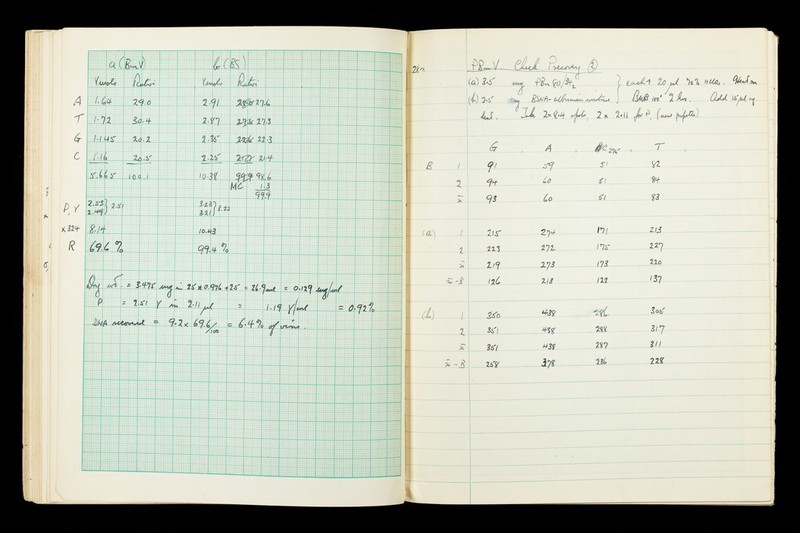 a (BmV) b (BS)
γ mols Ratio γ mols Ratio
A 1.64 29.0 2.91 27.6
T 1.72 30.4 2.87 27.3
G 1.145 20.2 2.35 22.3
C 1.16 20.5 2.25 21.4
5.665 100.1 10.38 99.9 98.6
MC 1.3
99.9
P, γ 2.53 2.49 } 2.51 3.23 3.21 } 3.22
x 324 8.14 10.43
R 69.6 % 99.4 %
Dry wt. = 3.475 mg in 25 x 0.976 + 2.5 = 26.9 ml = 0.129 mg/ml
P = 2.51 γ in 2.11 µl = 1.19 γ/ml = 0.92 %
DNA recovered = 9.2 x 69.6/100 = 6.4 % of virus.
PBmV. Check Recovery (2)
(a) 3.5 mg PBm } each + 20 µl 72% HClO4.
(b) 2.5 mg DNA-albumin mixture } 100° 2 hrs. Add 15 µl
Take 2 x 8.4 2 x 2.11 for P. (new pipette)
G A C T
B 1 91 59 51 82
2 94 60 51 84
x̄ 93 60 51 83
(a) 1 215 274 171 213
2 223 272 175 227
x̄ 219 273 173 220
x̄ - B 126 213 122 137
(b) 1 350 438 286 305
2 351 438 288 317
x̄ 351 438 287 311
x̄ - B 258 378 236 228